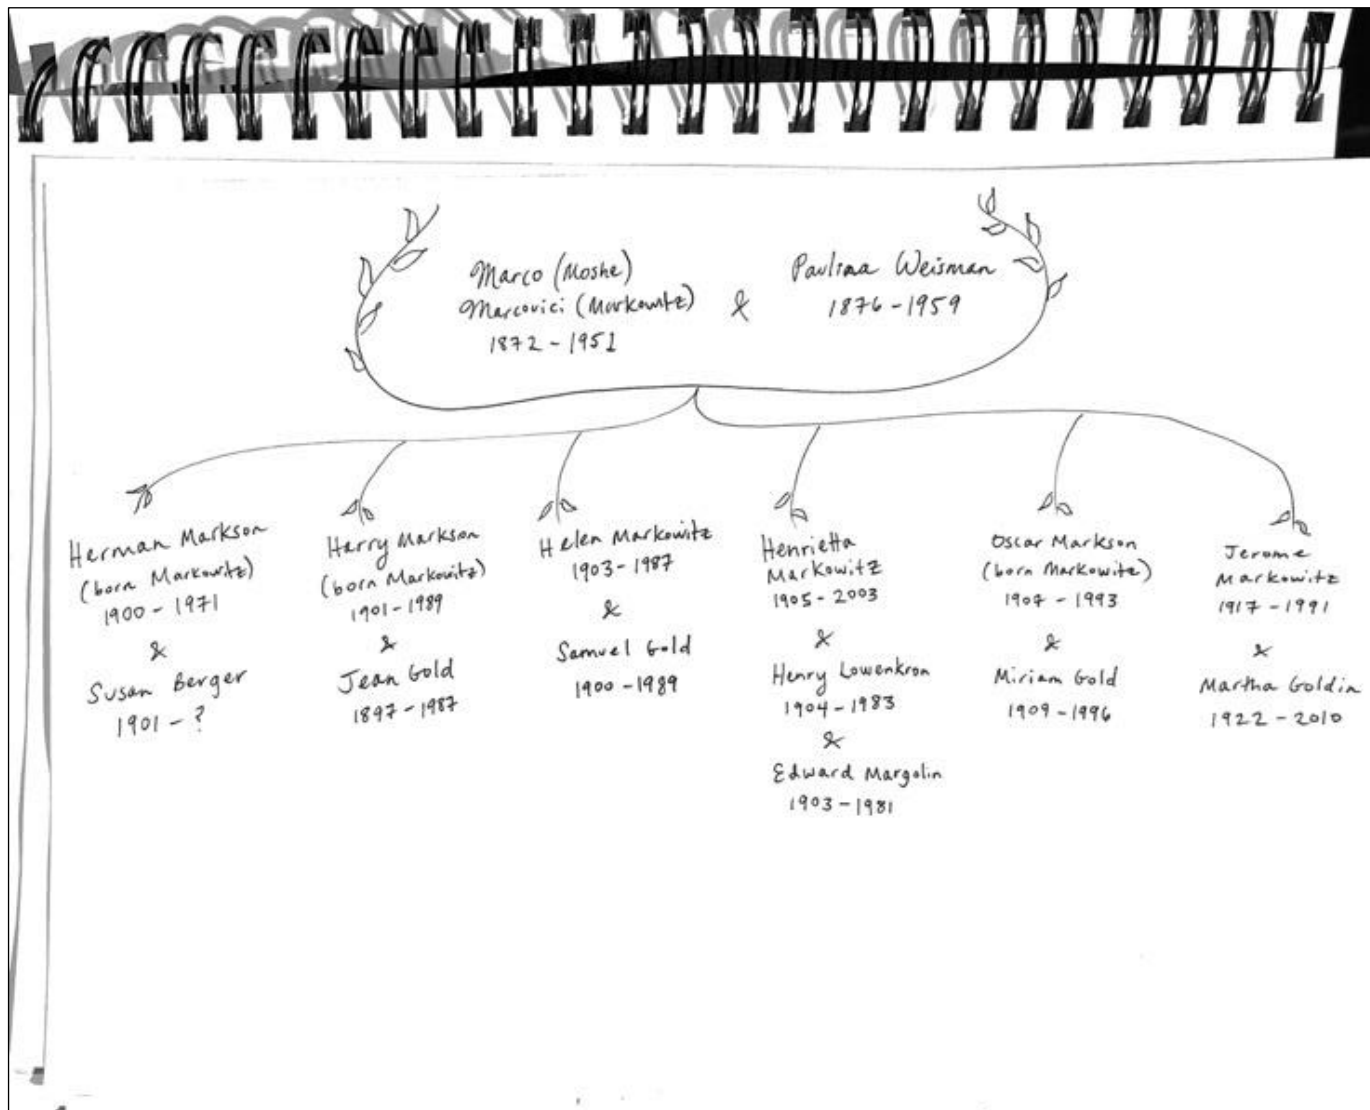 Marco (Moshe)
Marcovici (Markowitz)
1872 - 1951
&
Paulina Weisman
1876 - 1959
Herman Markson
(born Markowitz)
1900 - 1971
&
Susan Berger
1901 - ?
Harry Markson
(born Markowitz)
1901 - 1989
&
Jean Gold
1897 - 1987
Helen Markowitz
1903 - 1987
&
Samuel Gold
1900 - 1989
Henrietta
Markowitz
1905 - 2003
&
Henry Lowenkron
1904 - 1983
&
Edward Margolin
1903 - 1981
Oscar Markson
(born Markowitz)
1907 - 1993
&
Miriam Gold
1909 - 1996
Jerome
Markowitz
1917 - 1991
&
Martha Goldin
1922 - 2010